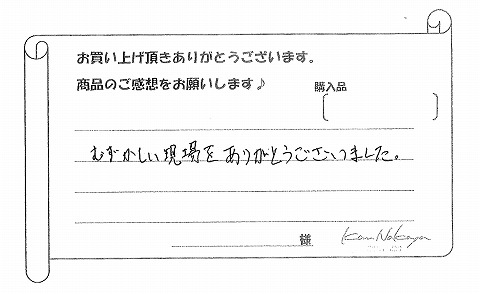 お買い上げ頂きありがとうございます。
商品のご感想をお願いします♪
購入品
むずかしい現場をありがとうございました。
様